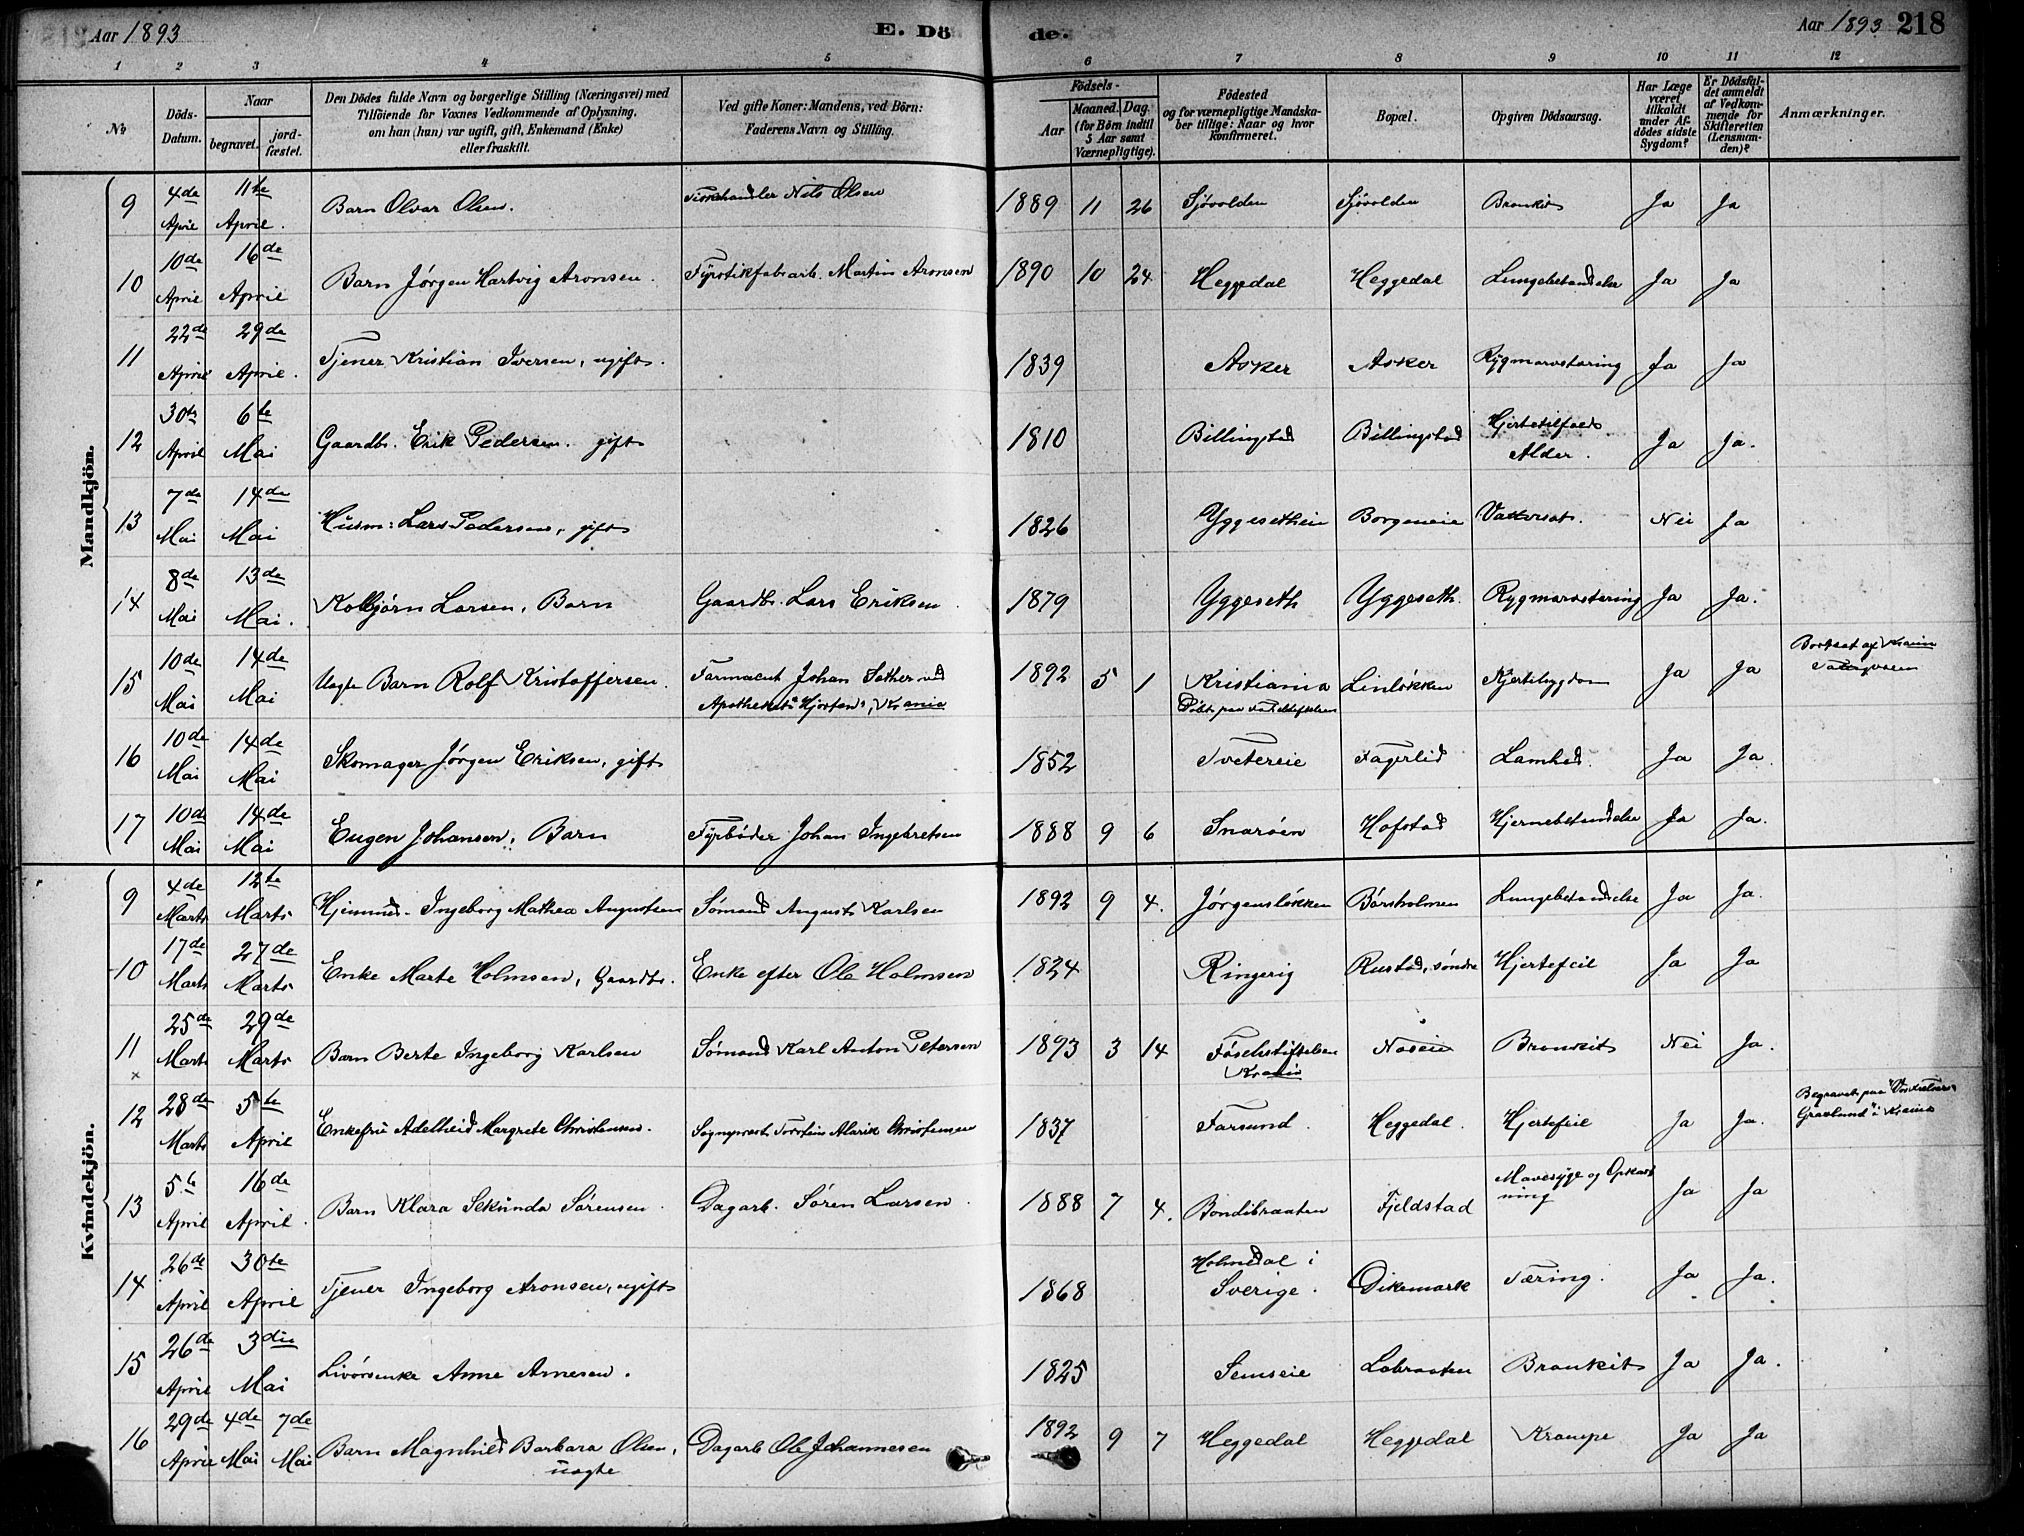 Aar 1893
E. Dö
de.
Aar 1893 218
1 2 3 4 5 6 7 8 9 10 11 12
№
Döds-Datum.
Naar
begravet. jord-fæstet.
Den Dödes fulde Navn og borgerlige Stilling (Næringsvei) med
Tilföiende for Voxnes Vedkommende af Oplysning,
om han (hun) var ugift, gift, Enkemand (Enke)
eller fraskilt.
Ved gifte Koner: Mandens, ved Börn:
Faderens Navn og Stilling.
Födsels-
Aar Maaned. Dag.
(for Börn indtil
5 Aar samt
Værnepligtige).
Födested
og for værnepligtige Mandska-
ber tillige: Naar og hvor
konfirmeret.
Bopæl.
Opgiven Dödsaarsag.
Har Læge
været
tilkaldt
under Af-
dödes sidste
Sygdom?
Er Dödsfal-
det anmeldt
af Vedkom-
mende for
Skifteretten
(Lensman-
den)?
Anmærkninger.
Mandkjön.
9 4de April 11te April. Barn Olvar Olsen. Fiskehandler Nils Olsen 1889 11 26 Sjövolden Sjövolden Bronkit Ja Ja
10 10de April 16de April Barn Jørgen Hartvig Aronsen. Fyrstikfabarb. Martin Aronsen 1890 10 24 Heggedal Heggedal Lungebetændelse Ja Ja
11 22de April 29de April. Tjener Kristian Iversen, ugift. 1839 Asker Asker Rygmarvstæring Ja Ja
12 30te April 6te Mai Gaardbr. Erik Pedersen. gift 1810 Billingstad Billingstad Hjertetilfælde Alder. Ja Ja.
13 7de Mai 14de Mai Husm: Lars Pedersen, gift 1826 Yggesetheie Borgeneie Vattersot. Nei Ja
14 8de Mai 13de Mai. Kolbjørn Larsen, Barn Gaardbr. Lars Eriksen 1879 Yggeseth Yggeseth. Rygmarvstæring Ja Ja.
15 10de Mai 14de Mai Uægte Barn Rolf Kristoffersen. Farmaceut Johan Sæther ved Apotheket "Hjorten", Krania 1892 5 1 Kristiania Döbt paa Fødselsstiftelsen Linløkken Hjertesygdom Ja Ja Bortsat af Krania
16 10de Mai 14de Mai Skomager Jørgen Eriksen, gift 1852 Tvetereie Fagerlid Lamhed. Ja Ja.
17 10de Mai 14de Mai Eugen Johansen, Barn Fyrbøder Johan Ingebretsen 1888 9 6 Snarøen Hofstad Hjernebetændelse Ja Ja.
Kvindekjön.
9 4de Marts 12te Marts Hjemmed. Ingeborg Mathea Augustsen Sømand August Karlsen 1892 9 4. Jørgensløkken Børsholmen Lungebetændelse Ja Ja.
10 17de Marts 27de Marts Enke Marte Holmsen, Gaardbr. Enke efter Ole Holmsen 1824 Ringerig Rustad, søndre Hjertefeil Ja Ja
11 × 25de Marts 29de Marts Barn Berte Ingeborg Karlsen Sømand Karl Anton Petersen 1893 3 14 Fødselsstiftelsen Krania Næseie Bronkit Nei Ja.
12 28de Marts 5te April Enkefru Adelheid Margrete Christensen. Sogneprest Torstein Alarik Christensen 1837 Farsund. Heggedal. Hjertefeil Ja Ja. Begravet paa "Vor Frelsers Gravlund" i Krania
13 5te April 16de April. Barn Klara Sekunda Sørensen. Dagarb. Søren Larsen. 1888 7 4. Bondibraaten Fjeldstad Mavesyge og Opkastning Ja Ja
14 26de April 30te April Tjener Ingeborg Aronsen, ugift 1868 Holmedal i Sverige. Dikemark Tæring. Ja Ja.
15 26de April 3die Mai Enke Anne Arnesen. 1825 Semseie Løbraaten Bronkit Ja Ja.
16 29de April 4de Mai 7de Mai Barn Magnhild Barbara Olsen, uægte Dagarb Ole Johannesen 1892 9 7 Heggedal Heggedal Krampe Ja Ja